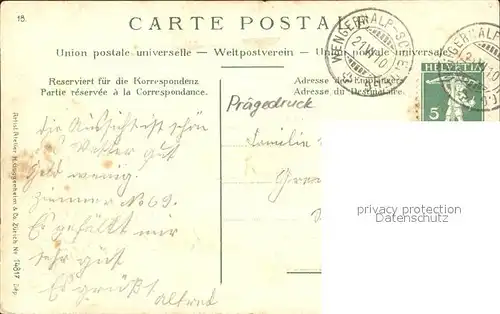 18.
CARTE POSTALE
Union postale universelle — Weltpostverein — Union postale universale
Reserviert für die Korrespondenz
Partie réservée à la Correspondance.
Adresse des Empfängers.
Adresse du Destinataire.
WENGERNALP
HELVETIA
5
Prägedruck
die Aussicht ist schön
Wetter gut
Geld wenig.
Zimmer No 69.
Es gefällt mir
sehr gut
Es grüßt
Alfred
Familie
privacy protection
Datenschutz
Artist. Atelier H. Guggenheim & Co. Zürich Nr. 14817 Dép.